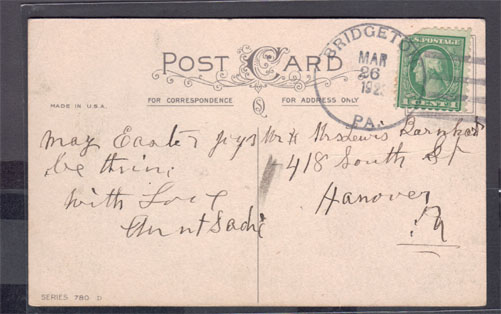 POST CARD
BRIDGETON
MAR
26
192
PA.
U.S. POSTAGE
CENTS
MADE IN U.S.A.
FOR CORRESPONDENCE
FOR ADDRESS ONLY
May Easter joys
be thine
With Love
Aunt Sadie
Mr & Mrs Lewis
418 South St
Hanover
Pa
SERIES 780 D